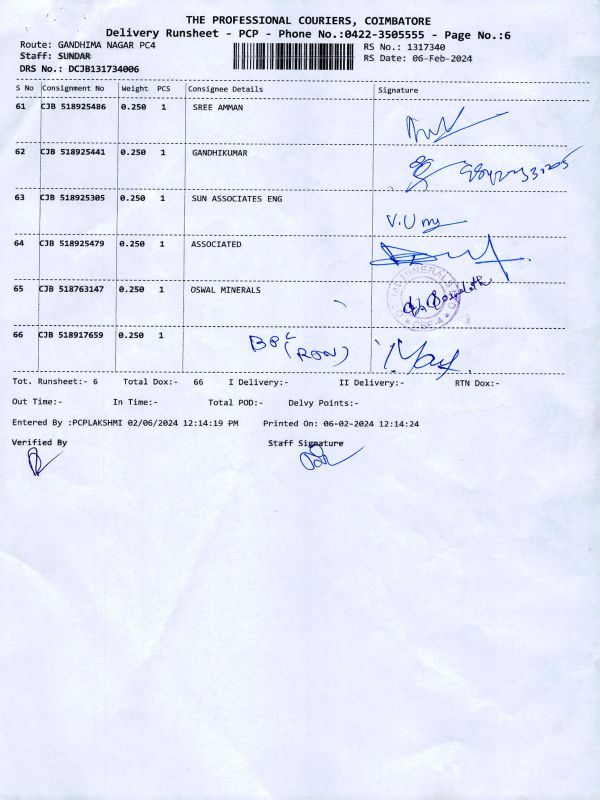 THE PROFESSIONAL COURIERS, COIMBATORE
Delivery Runsheet - PCP - Phone No.:0422-3505555 - Page No.:6
Route: GANDHIMA NAGAR PC4
RS No.: 1317340
Staff: SUNDAR
RS Date: 06-Feb-2024
DRS No.: DCJB131734006
S No Consignment No Weight PCS Consignee Details Signature
61 CJB 518925486 0.250 1 SREE AMMAN
62 CJB 518925441 0.250 1 GANDHIKUMAR
63 CJB 518925305 0.250 1 SUN ASSOCIATES ENG
V.Uma
64 CJB 518925479 0.250 1 ASSOCIATED
65 CJB 518763147 0.250 1 OSWAL MINERALS
MINERALS
CBE-4
66 CJB 518917659 0.250 1
Tot. Runsheet:- 6 Total Dox:- 66 I Delivery:- II Delivery:- RTN Dox:-
Out Time:- In Time:- Total POD:- Delvy Points:-
Entered By :PCPLAKSHMI 02/06/2024 12:14:19 PM Printed On: 06-02-2024 12:14:24
Verified By Staff Signature